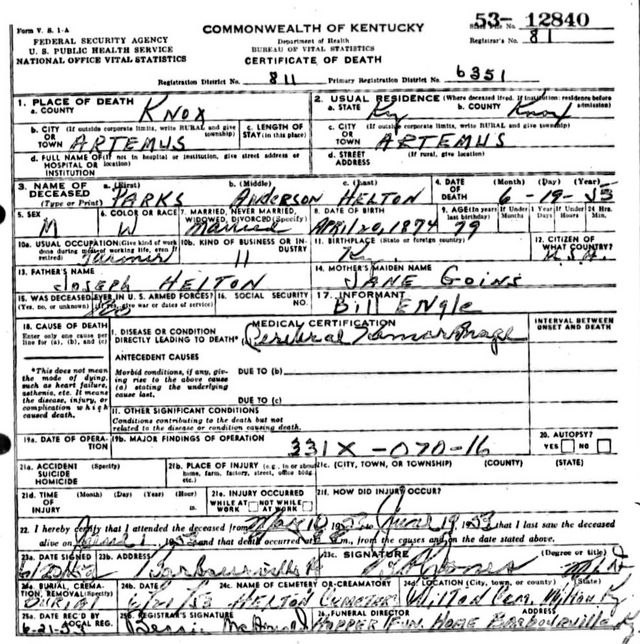 Form V. S. 1-A
COMMONWEALTH OF KENTUCKY
53- 12840
FEDERAL SECURITY AGENCY
Department of Health
Registrar's No. 81
U. S. PUBLIC HEALTH SERVICE
BUREAU OF VITAL STATISTICS
NATIONAL OFFICE VITAL STATISTICS
CERTIFICATE OF DEATH
Registration District No. 811 Primary Registration District No. 6351
1. PLACE OF DEATH
a. COUNTY KNOX
2. USUAL RESIDENCE (Where deceased lived. If institution: residence before
a. STATE Ky b. COUNTY Knox
b. CITY (If outside corporate limits, write RURAL and give township)
OR TOWN ARTEMUS
c. LENGTH OF STAY (in this place)
c. CITY (If outside corporate limits, write RURAL and give township)
OR TOWN ARTEMUS
d. FULL NAME OF (If not in hospital or institution, give street address or location)
HOSPITAL OR INSTITUTION
d. STREET ADDRESS (If rural, give location)
3. NAME OF DECEASED (Type or Print)
a. (First) PARKS
b. (Middle) Anderson
c. (Last) HELTON
4. DATE OF DEATH (Month) (Day) (Year)
6-19-53
5. SEX M
6. COLOR OR RACE W
7. MARRIED, NEVER MARRIED, WIDOWED, DIVORCED (Specify) Married
8. DATE OF BIRTH APRIL 20, 1874
9. AGE (In years last birthday) 79
10a. USUAL OCCUPATION (Give kind of work done during most of working life, even if retired) Farmer
10b. KIND OF BUSINESS OR INDUSTRY 11
11. BIRTHPLACE (State or foreign country) Ky.
12. CITIZEN OF WHAT COUNTRY? U.S.A.
13. FATHER'S NAME
JOSEPH HELTON
14. MOTHER'S MAIDEN NAME
JANE GOINS
15. WAS DECEASED EVER IN U. S. ARMED FORCES?
(Yes, no, or unknown) (If yes, give war or dates of service) no
16. SOCIAL SECURITY NO.
17. INFORMANT
Bill ENGLE
18. CAUSE OF DEATH
Enter only one cause per line for (a), (b), and (c)
MEDICAL CERTIFICATION
INTERVAL BETWEEN ONSET AND DEATH
I. DISEASE OR CONDITION
DIRECTLY LEADING TO DEATH* (a) Cerebral Hemorrhage
*This does not mean the mode of dying, such as heart failure, asthenia, etc. It means the disease, injury, or complication which caused death.
ANTECEDENT CAUSES
Morbid conditions, if any, giving rise to the above cause (a) stating the underlying cause last.
DUE TO (b)
DUE TO (c)
II. OTHER SIGNIFICANT CONDITIONS
Conditions contributing to the death but not related to the disease or condition causing death.
19a. DATE OF OPERATION
19b. MAJOR FINDINGS OF OPERATION
331X-070-16
20. AUTOPSY?
YES NO
21a. ACCIDENT SUICIDE HOMICIDE (Specify)
21b. PLACE OF INJURY (e.g., in or about home, farm, factory, street, office bldg. etc.)
21c. (CITY, TOWN, OR TOWNSHIP) (COUNTY) (STATE)
21d. TIME OF INJURY (Month) (Day) (Year) (Hour)
21e. INJURY OCCURRED
WHILE AT WORK NOT WHILE AT WORK
21f. HOW DID INJURY OCCUR?
22. I hereby certify that I attended the deceased from May 10 1953 to June 19 1953 that I last saw the deceased
alive on June 1, 1953 and that death occurred at m., from the causes and on the date stated above.
23a. DATE SIGNED
23b. ADDRESS Barbourville Ky
23c. SIGNATURE Jones (Degree or title) MD
24a. BURIAL, CREMATION, REMOVAL (Specify) Burial
24b. DATE 6/21/53
24c. NAME OF CEMETERY OR CREMATORY HELTON CEMETERY
24d. LOCATION (City, town, or county) (State)
25a. DATE REC'D BY LOCAL REG. 6-21-53
25b. REGISTRAR'S SIGNATURE
26. FUNERAL DIRECTOR ADDRESS
HOPPER FUN. HOME Barbourville Ky